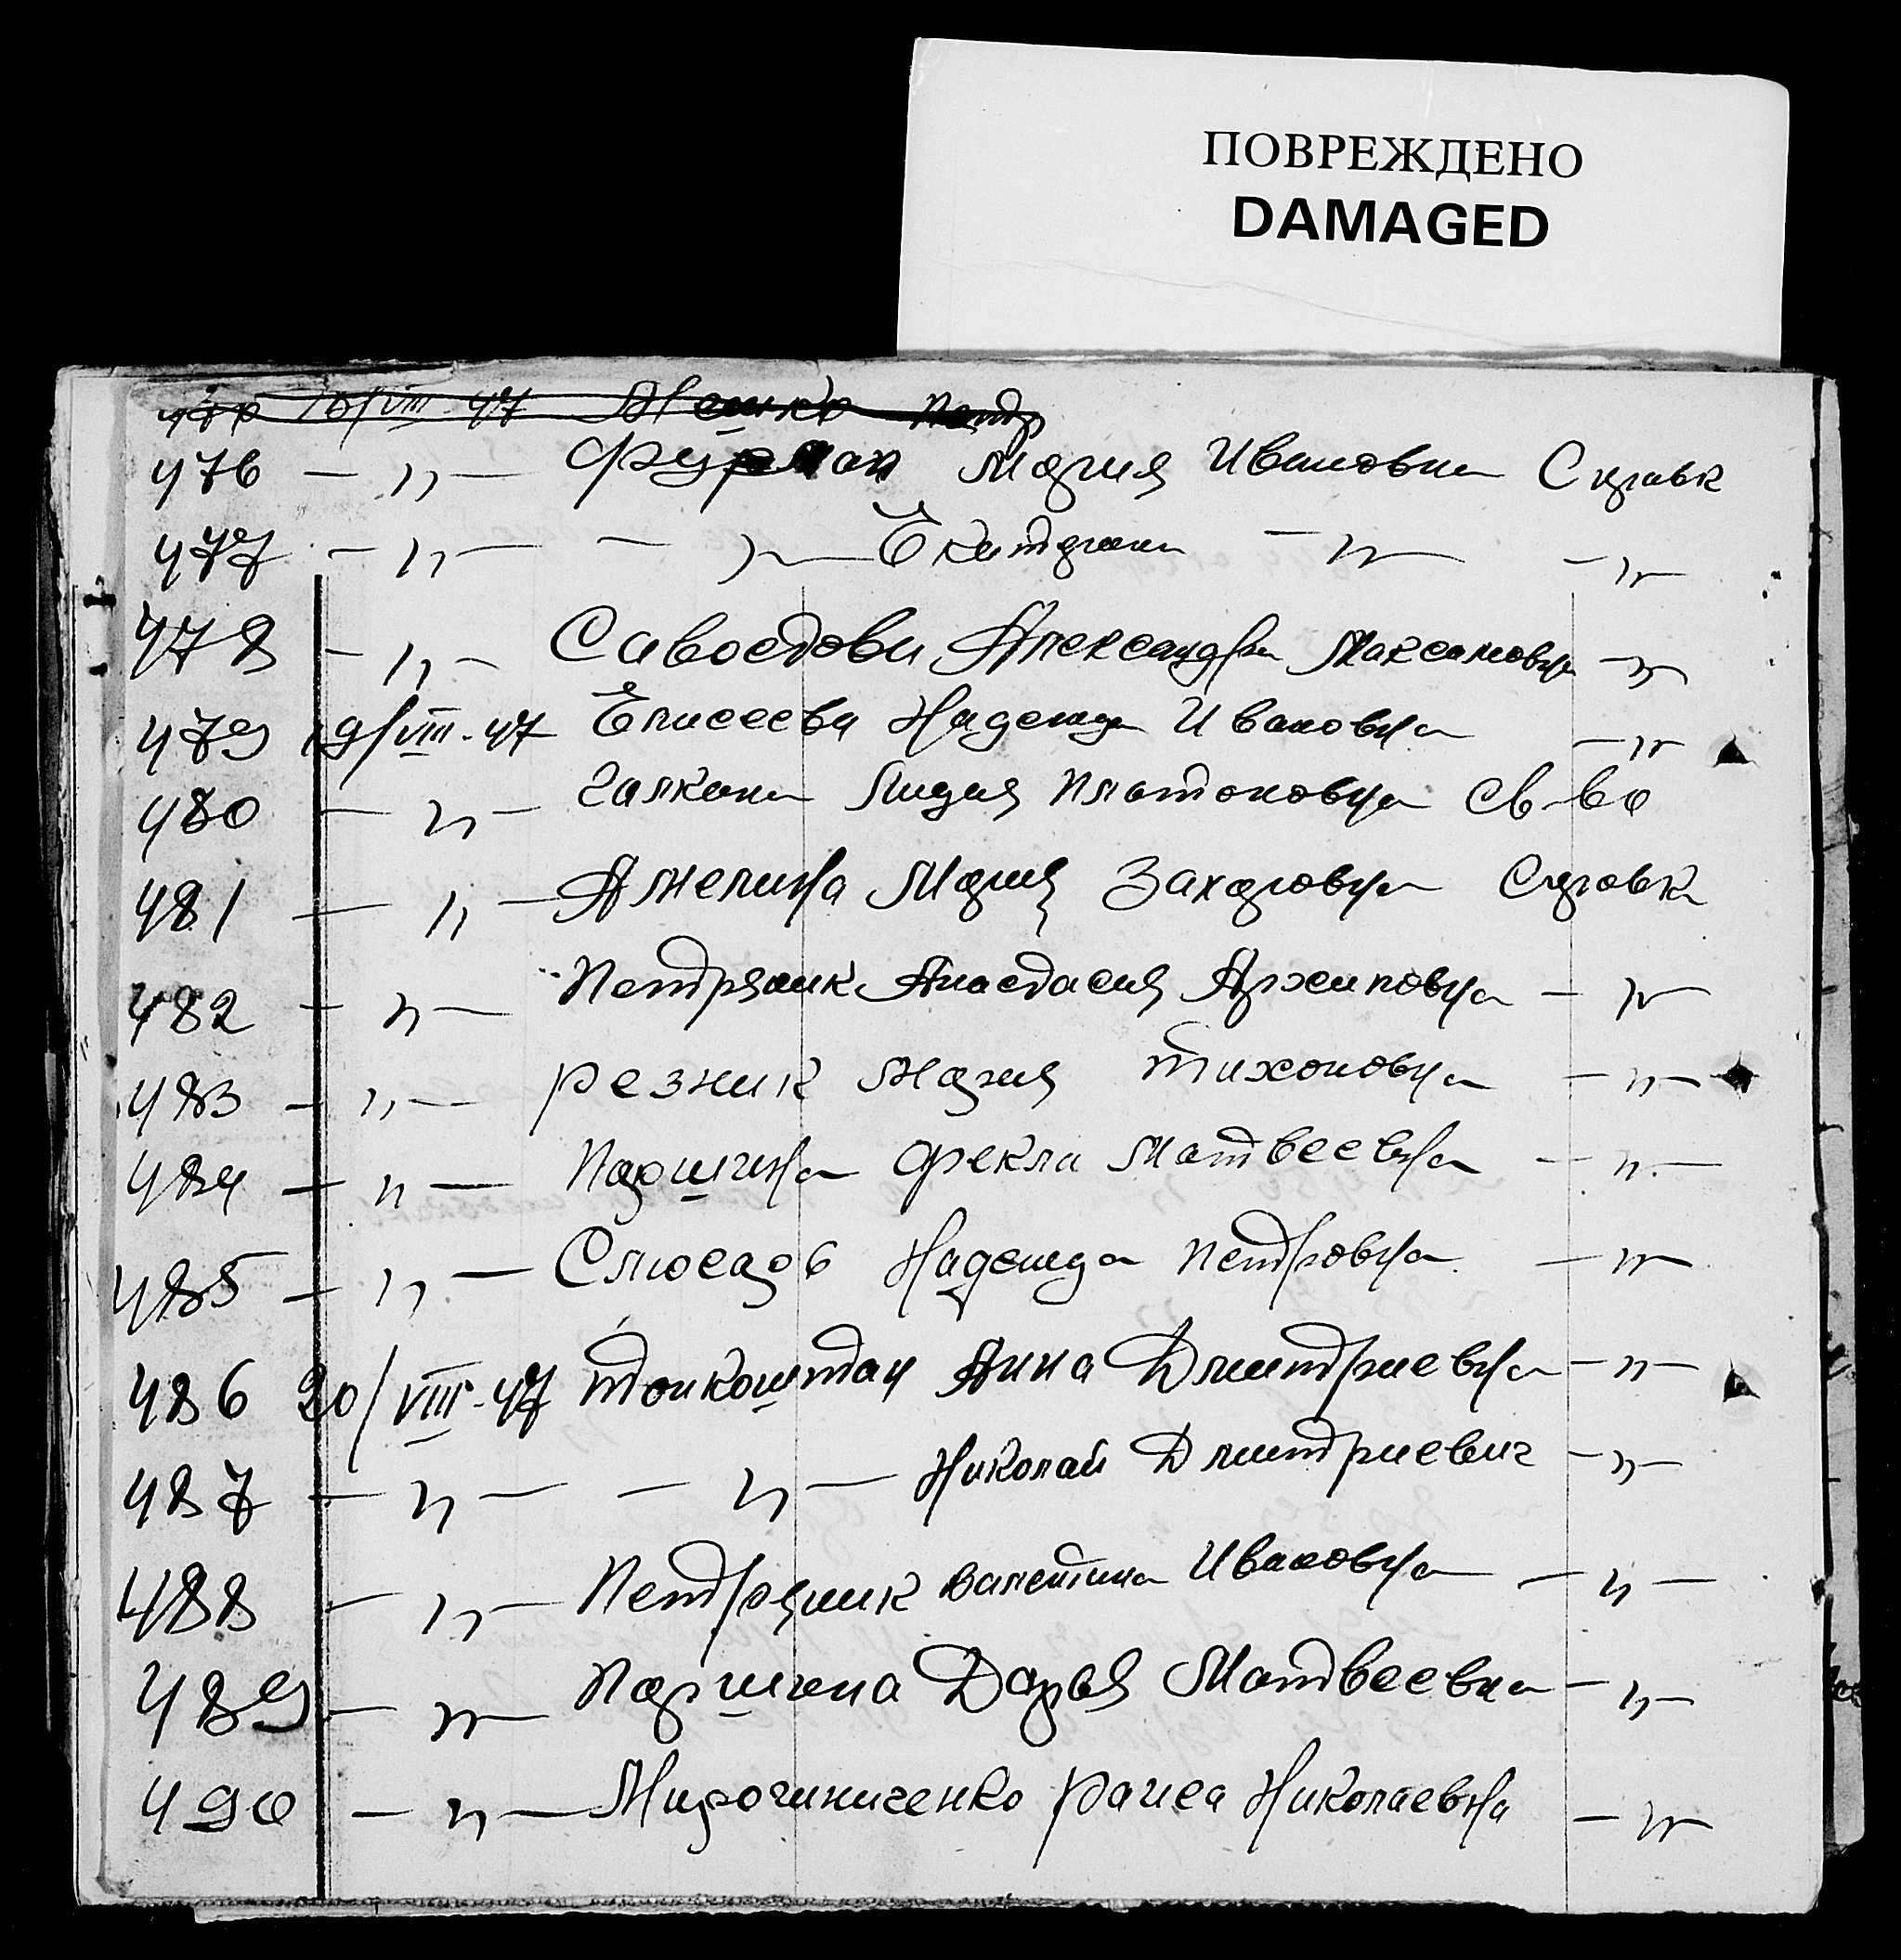 ПОВРЕЖДЕНО
DAMAGED
18/VIII-47 Петр
476 — " — Фурман Мария Ивановна Справк
477 — " — — " — Екатерина — " — — " —
478 — " — Савостова Александра Максимовна — " —
479 19/VIII-47 Елисеева Надежда Ивановна — " —
480 — " — Галкина Лидия Платоновна Св-во
481 — " — Амелина Мария Захаровна Справка
482 — " — Петряник Анастасия Архиповна — " —
483 — " — Резник Мария Тихоновна — " —
484 — " — Паршина Фекла Матвеевна — " —
485 — " — Слюсарь Надежда Петровна — " —
486 20/VIII-47 Тонкоштан Анна Дмитриевна — " —
487 — " — — " — Николай Дмитриевич — " —
488 — " — Петряник Валентина Ивановна — " —
489 — " — Паршина Дарья Матвеевна — " —
490 — " — Мирочниченко Раиса Николаевна — " —